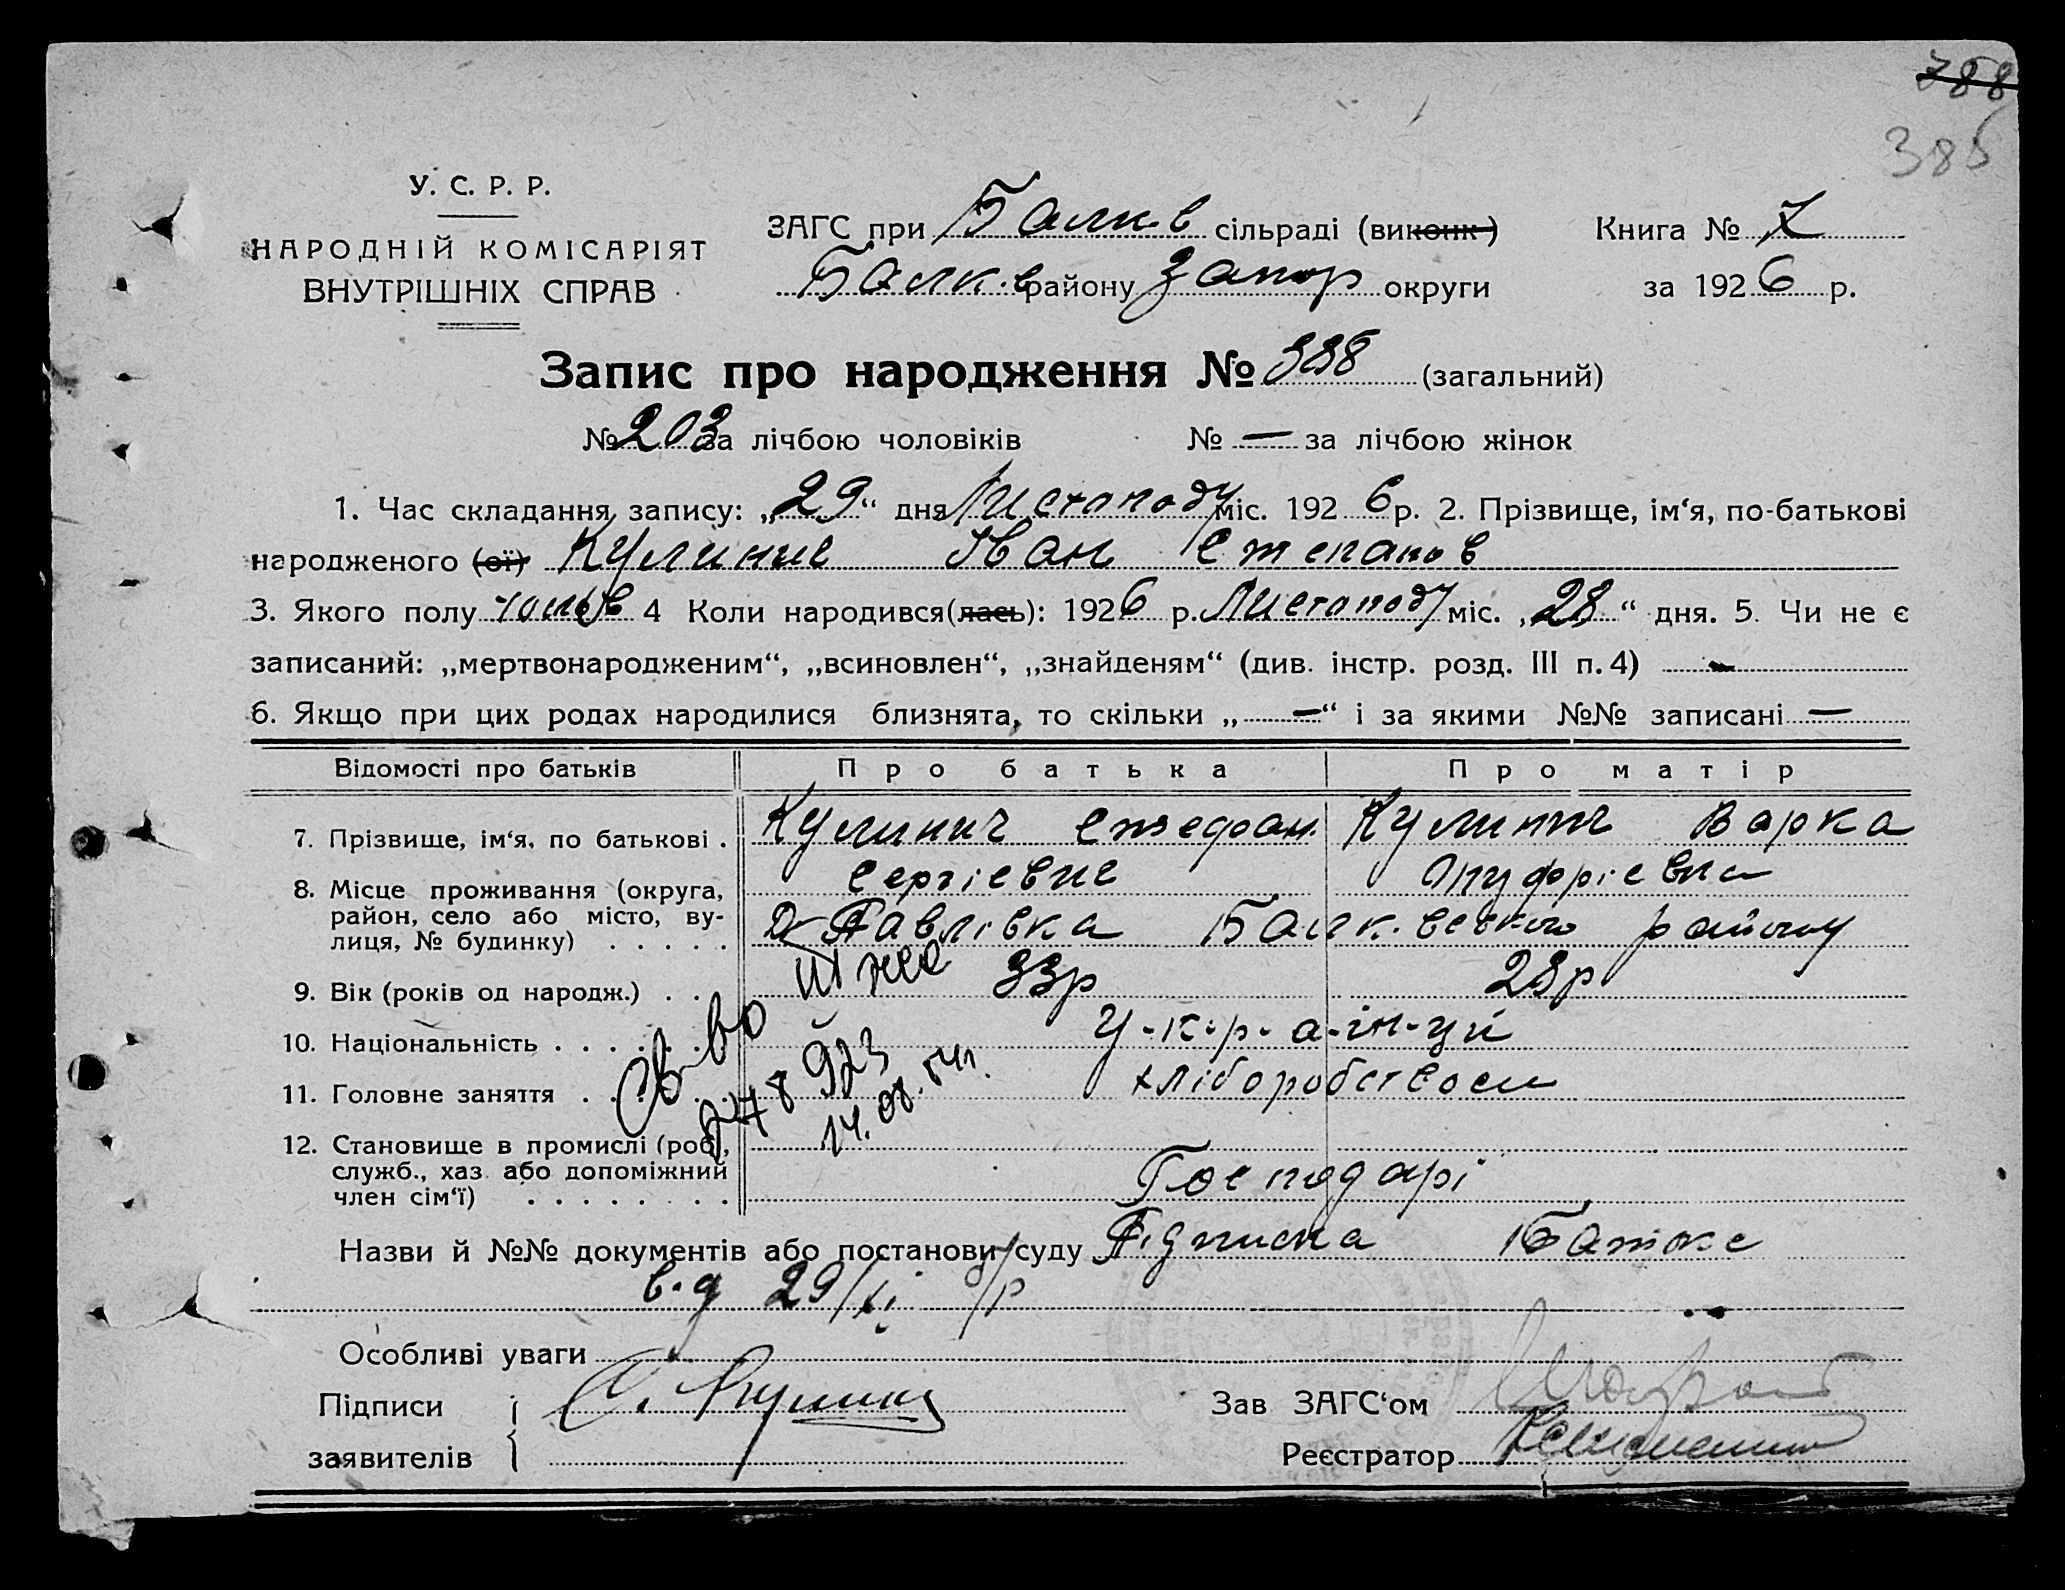 788
385
У. С. Р. Р.
НАРОДНІЙ КОМІСАРІЯТ
ВНУТРІШНІХ СПРАВ
ЗАГС при Балк.в сільраді (виконк)
Балк.в району Запор округи
Книга № 7
за 1926 р.
Запис про народження № 388 (загальний)
№ 203 за лічбою чоловіків № — за лічбою жінок
1. Час складання запису: „29“ дня Листопаду міс. 1926 р. 2. Прізвище, ім‘я, по-батькові
народженого (ої) Кулинис Іван Степанов
3. Якого полу чолов 4 Коли народився(лась): 1926 р. Листопаду міс. „28“ дня. 5. Чи не є
записаний: „мертвонародженим“, „всиновлен“, „знайденям“ (див. інстр. розд. III п. 4) -
6. Якщо при цих родах народилися близнята, то скільки „—“ і за якими №№ записані —
Відомості про батьків Про батька Про матір
7. Прізвище, ім‘я, по батькові . Кулинич Стефан Кулинич Варка
Сергієвис Онуфрієвна
8. Місце проживання (округа,
район, село або місто, ву-
лиця, № будинку) . . . . . Д Павлівка Балк.вского району
9. Вік (років од народж.) . . 33р 28р
10. Національність . . . . . . у-к-р-а-ін-ці
11. Головне заняття . . . . . хліборобством
12. Становище в промислі (роб.,
служб., хаз. або допоміжний
член сім‘ї) . . . . . . . . Господарі
св-во
923
14.08.54г.
Назви й №№ документів або постанови суду Підписка Батька
в.д 29/XI /р
Особливі уваги
Підписи
заявителів
Зав ЗАГС‘ом
Реєстратор